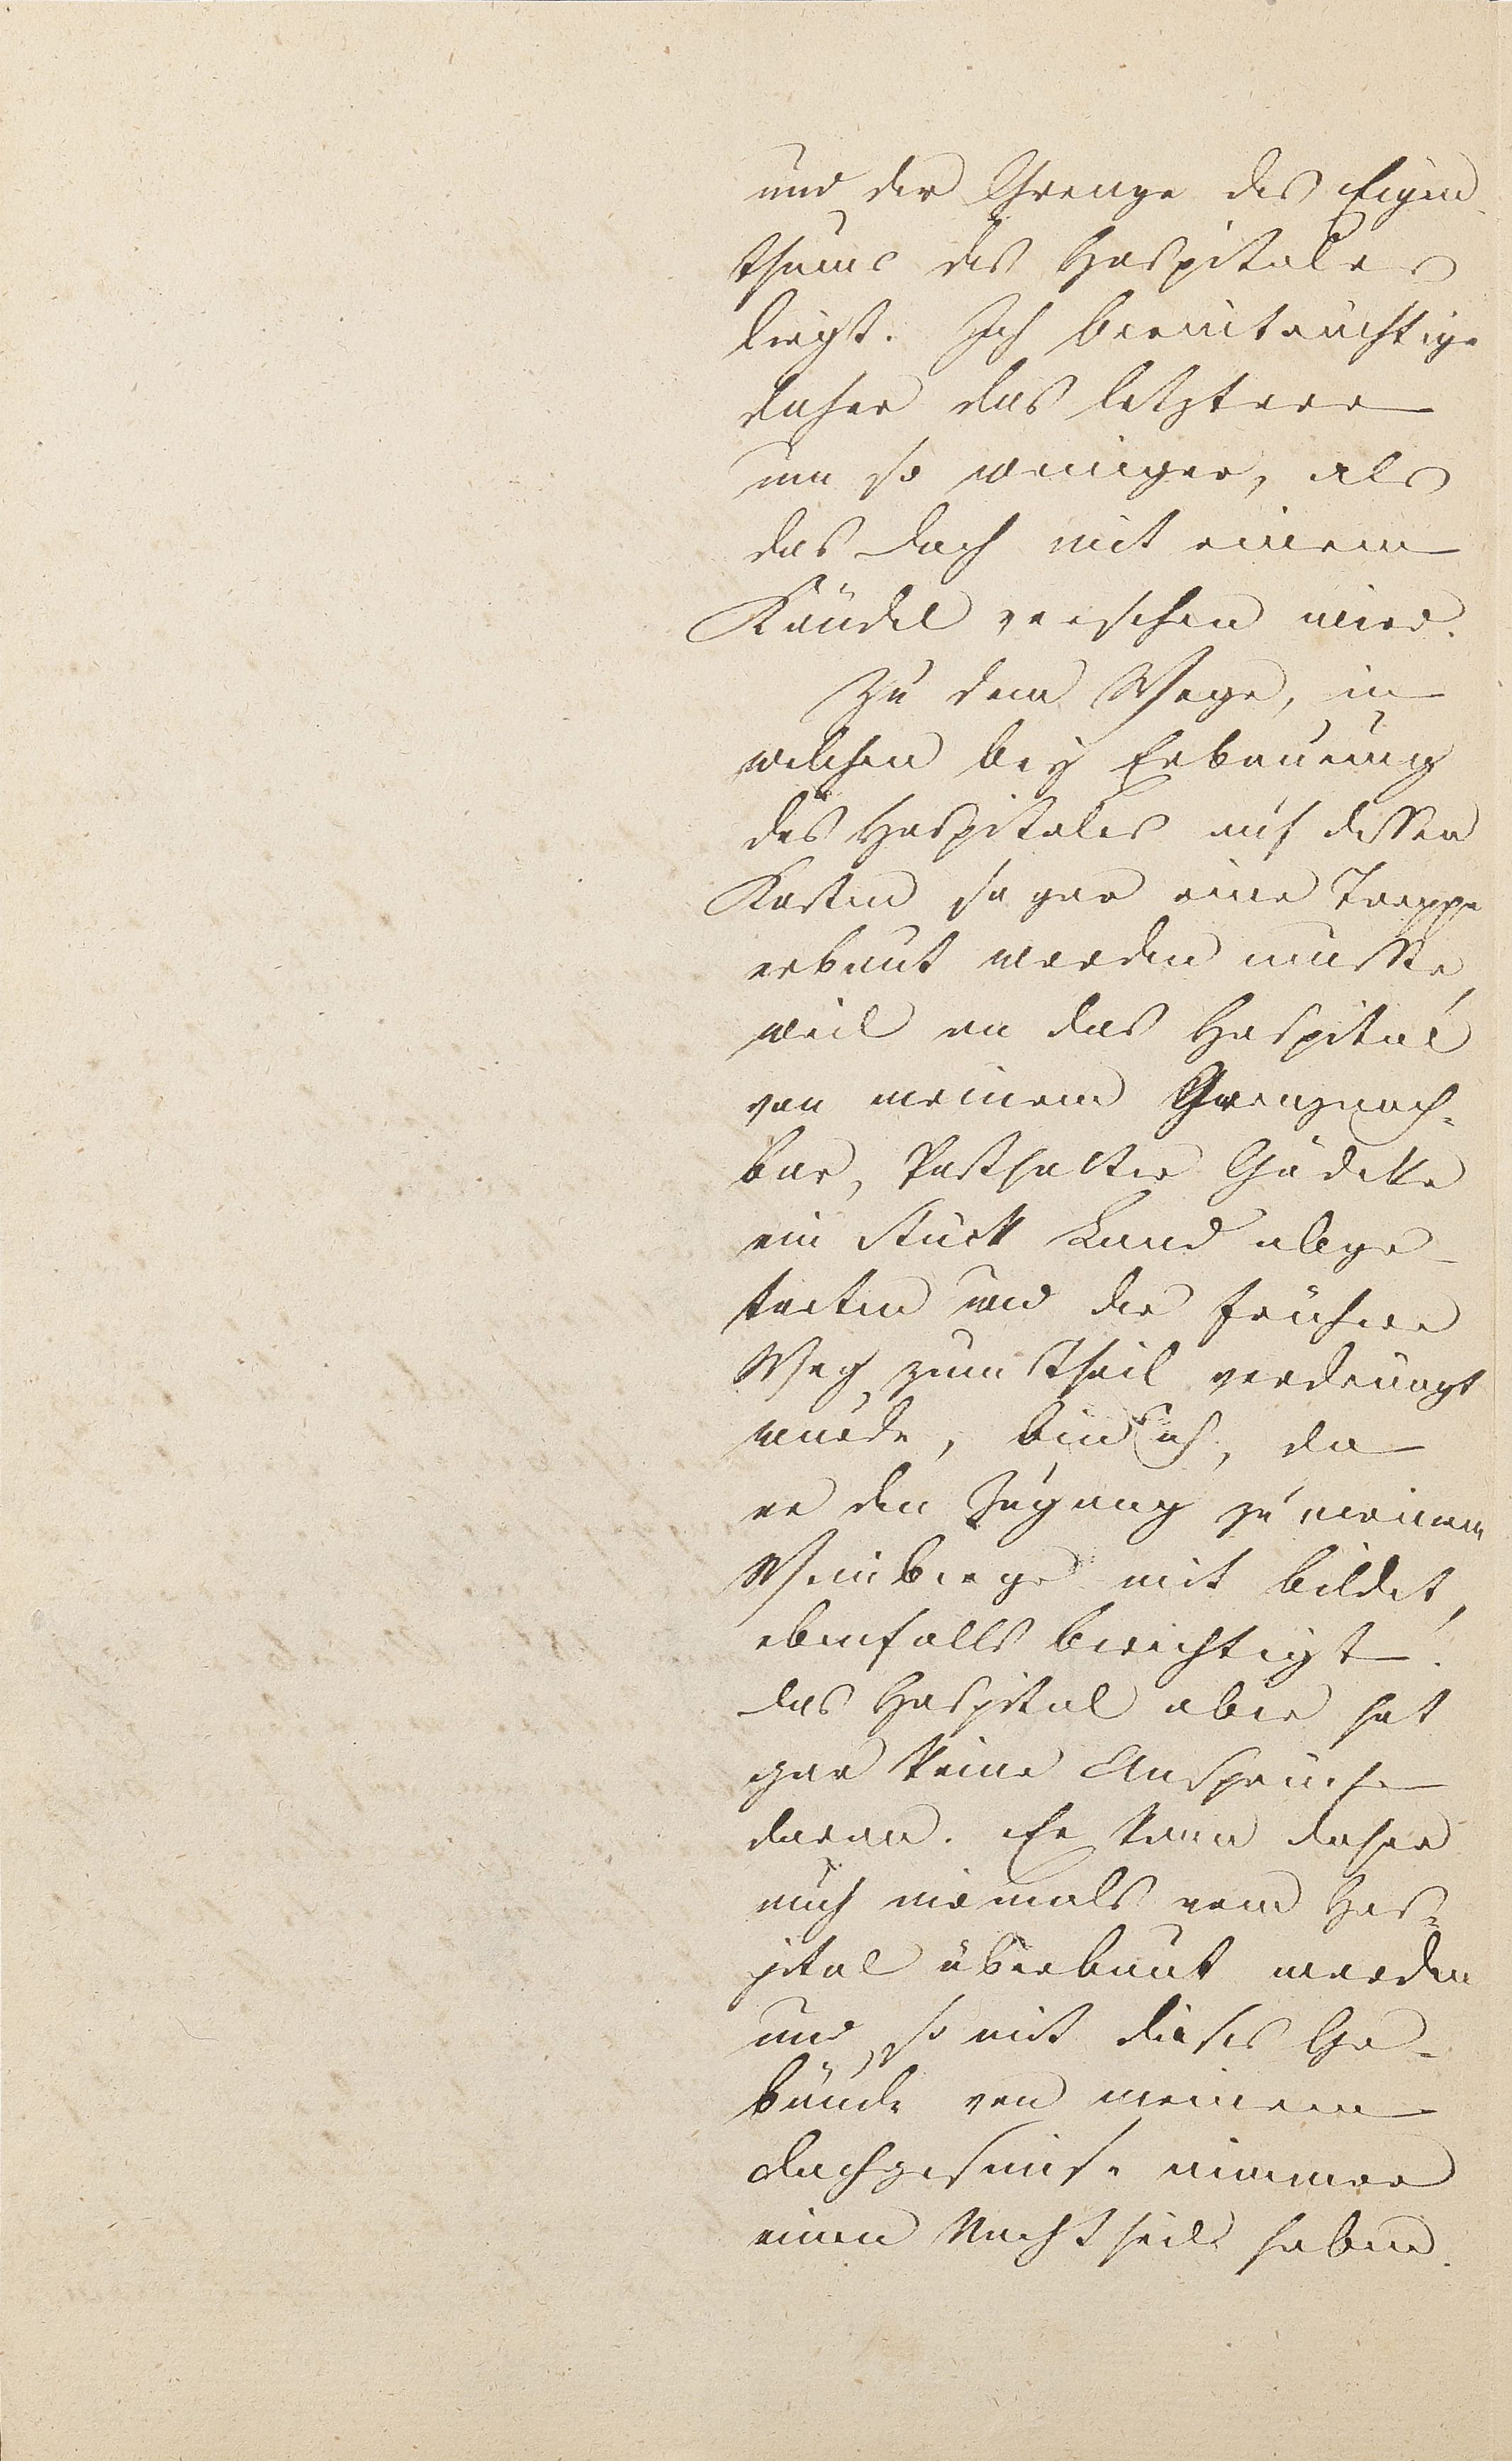 und der Grenze des Eigen
thums des Hospitales
liegt. Ich beeinträchtige
daher das letztere
um so weniger, als
das Dach mit einem
Kändel versehen wird.
Zu dem Wege, in
welchen bey Erbauung
des Hospitales auf dessen
Kosten sogar eine Treppe
erbaut werden mußte,
weil an das Hospital
von meinem Grenznach-
bar, Posthalter Gödecke
ein Stück Land abge-
treten und der frühere
Weg zum Theil verdrängt
wurde, bin ich, da
er den Zugang zu meinem
Weinberge mit bildet,
ebenfalls berechtigt.
das Hospital aber hat
gar keine Ansprüche
daran. Er kann daher
auch niemals vom Hos-
pital überbaut werden
und somit dieses Ge-
bäude von meinem
Dachgesimse nimmer
einen Nachtheil haben.